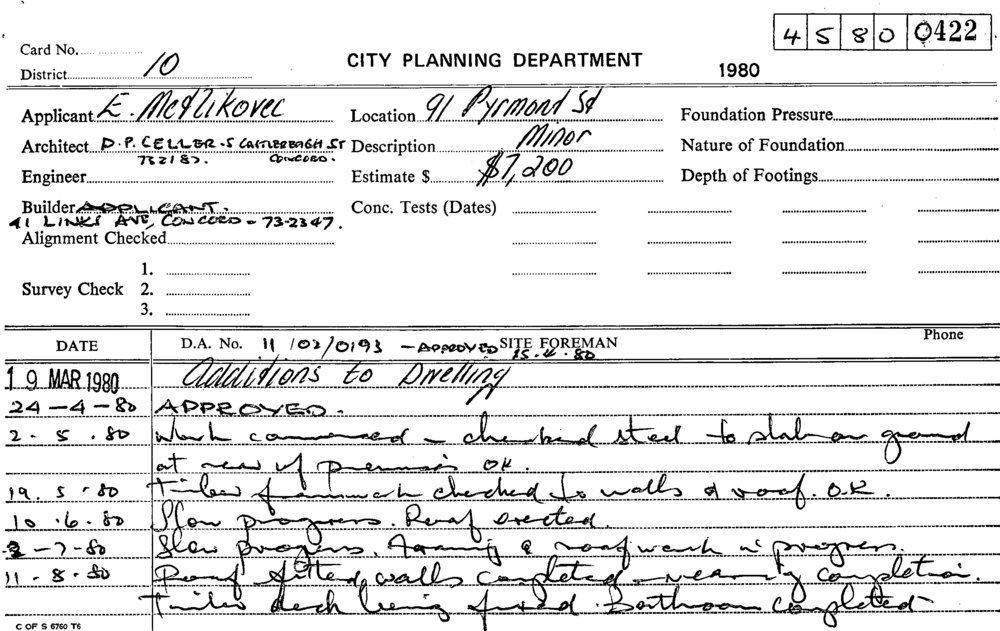 4 5 8 0 0422
Card No.
District 10
CITY PLANNING DEPARTMENT
1980
Applicant E.
Location 91 Pyrmont St
Foundation Pressure
Architect D.P. CELLER - 5 CASTLEREAGH ST
CONCORD.
Description Minor
Nature of Foundation
Engineer
Estimate $ $7,200
Depth of Footings
Builder APPLICANT.
41 LINKS AVE, CONCORD - 73-2347.
Conc. Tests (Dates)
Alignment Checked
Survey Check
1.
2.
3.
DATE
D.A. No. 11/02/0193 - APPROVED 15.4.80
SITE FOREMAN
Phone
19 MAR 1980 Additions to Dwelling
24-4-80 APPROVED.
2.5.80 Work commenced - checked steel to slab on ground
at rear of premises OK.
19.5.80 Timber framework checked to walls & roof. O.K.
10.6.80 Slow progress. Roof erected.
2-7-80 Slow progress. Framing & roof work in progress.
11.8.80 Roof fitted, walls completed - nearing completion.
Timber deck being fixed. Bathroom completed
C OF S 6760 T6